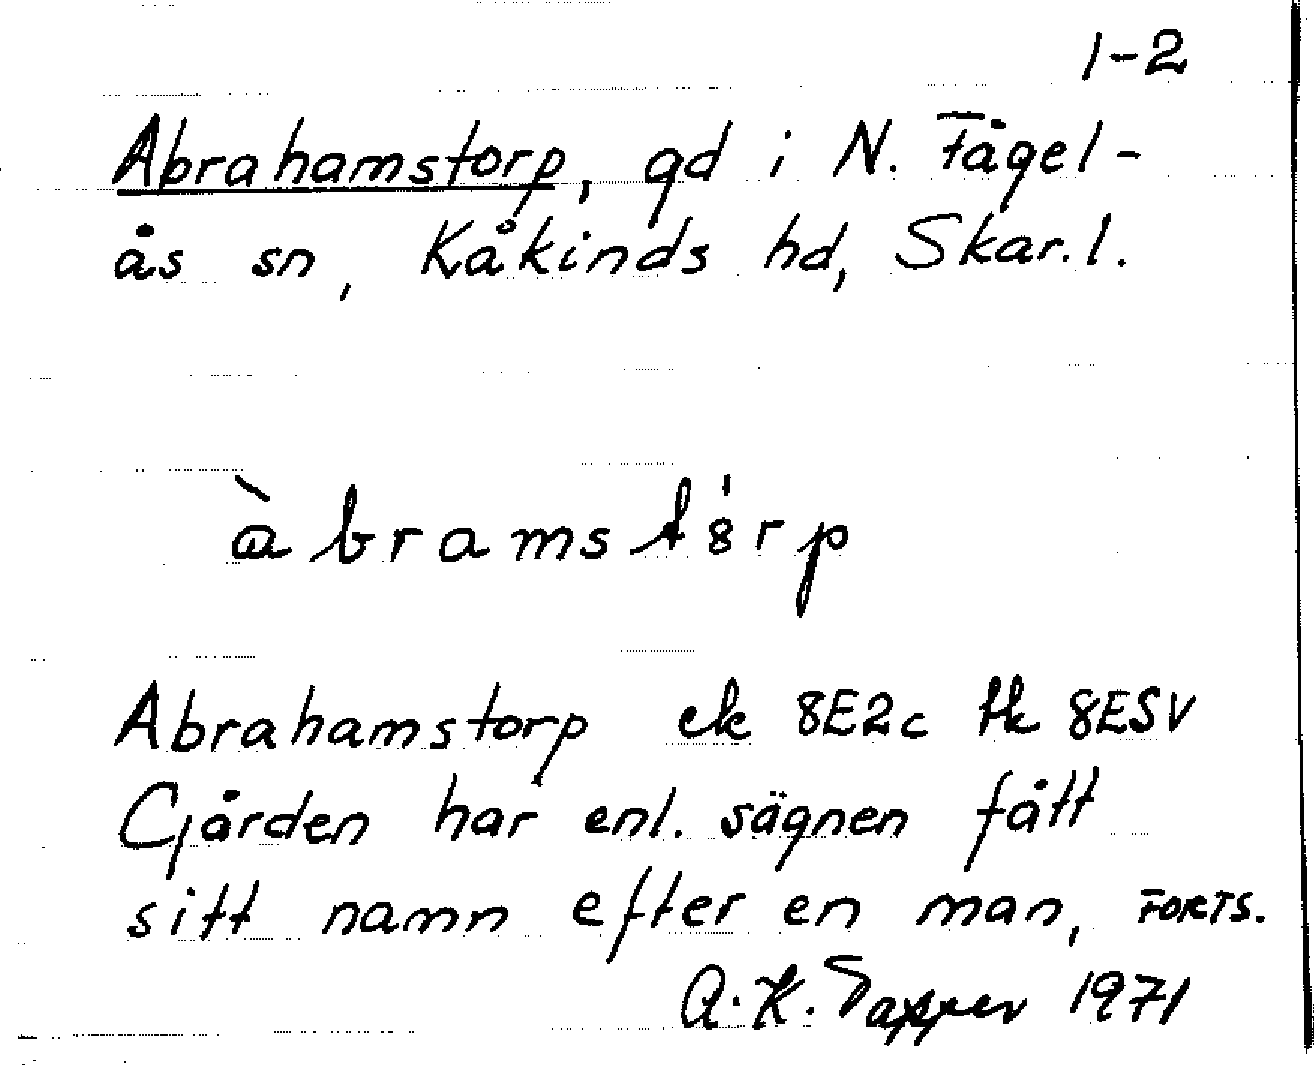 1-2
Abrahamstorp, gd i N. Fågel-
ås sn, Kåkinds hd, Skar.l.
àbramst8́rp
Abrahamstorp ek 8E2c tk 8ESV
Gården har enl. sägnen fått
sitt namn efter en man, FORTS.
A.K. Tapper 1971